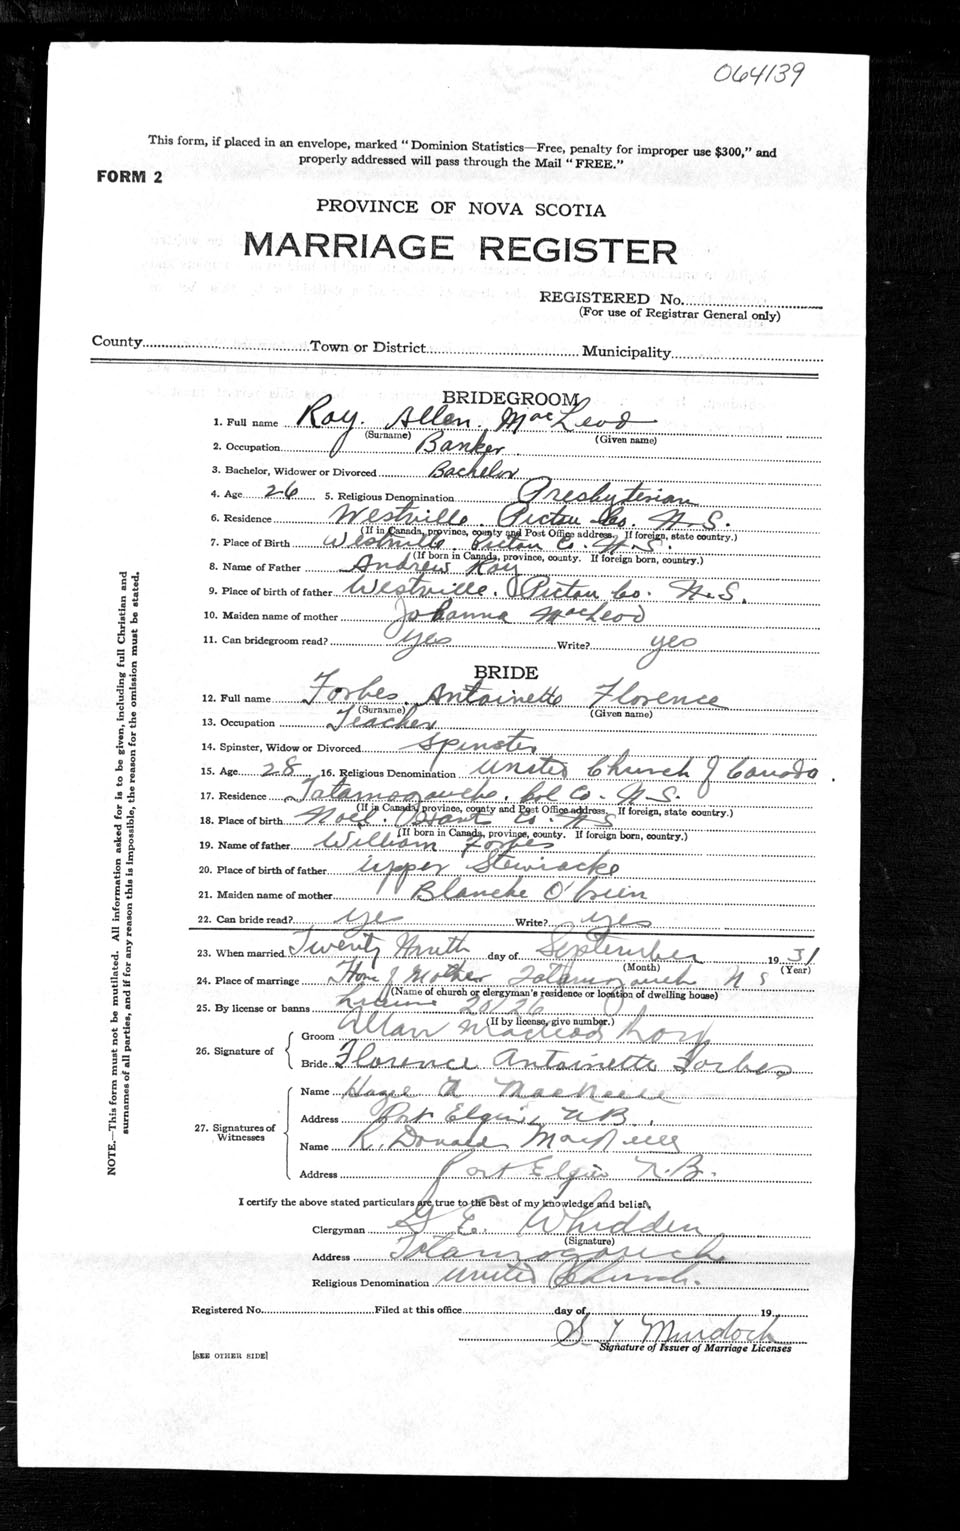 064139
This form, if placed in an envelope, marked "Dominion Statistics—Free, penalty for improper use $300," and
properly addressed will pass through the Mail "FREE."
FORM 2
PROVINCE OF NOVA SCOTIA
MARRIAGE REGISTER
REGISTERED No.
(For use of Registrar General only)
County Town or District Municipality
BRIDEGROOM
1. Full name Roy. Allan. MacLeod
(Surname) (Given name)
2. Occupation Banker
3. Bachelor, Widower or Divorced Bachelor
4. Age 26 5. Religious Denomination Presbyterian
6. Residence Westville. Pictou Co. N.S.
(If in Canada, province, county and Post Office address. If foreign, state country.)
7. Place of Birth Westville. Pictou Co. N.S.
(If born in Canada, province, county. If foreign born, country.)
8. Name of Father Andrew Roy
9. Place of birth of father Westville. Pictou Co. N.S.
10. Maiden name of mother Johanna MacLeod
11. Can bridegroom read? yes Write? yes
BRIDE
12. Full name Forbes Antoinette Florence
(Surname) (Given name)
13. Occupation Teacher
14. Spinster, Widow or Divorced Spinster
15. Age 28 16. Religious Denomination United Church of Canada.
17. Residence Tatamagouche. Col Co. N.S.
(If in Canada, province, county and Post Office address. If foreign, state country.)
18. Place of birth Noel. Hants Co. N S
(If born in Canada, province, county. If foreign born, country.)
19. Name of father William Forbes
20. Place of birth of father Upper Stewiacke
21. Maiden name of mother Blanche O'Brien
22. Can bride read? yes Write? yes
23. When married Twenty day of September 1931
(Month) (Year)
24. Place of marriage Home of Mother Tatamagouche N S
(Name of church or clergyman's residence or location of dwelling house)
25. By license or banns License 20126
(If by license, give number.)
26. Signature of
Groom Allan MacLeod Roy
Bride Florence Antoinette Forbes
27. Signatures of Witnesses
Name MacNeill
Address Port Elgin, N B.
Name K. Donald MacNeill
Address Port Elgin N.B.
I certify the above stated particulars are true to the best of my knowledge and belief,
Clergyman G E. Whidden
(Signature)
Address Tatamagouche
Religious Denomination United Church.
Registered No. Filed at this office day of 19
S T Murdoch
Signature of Issuer of Marriage Licenses
[SEE OTHER SIDE]
NOTE.—This form must not be mutilated. All information asked for is to be given, including full Christian and
surnames of all parties, and if for any reason this is impossible, the reason for the omission must be stated.